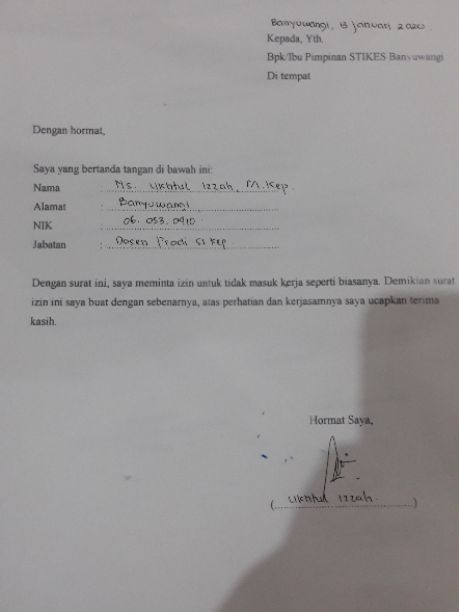 Banyuwangi, 13 Januari 2020
Kepada, Yth.
Bpk/Ibu Pimpinan STIKES Banyuwangi
Di tempat
Dengan hormat,
Saya yang bertanda tangan di bawah ini:
Nama : Ns. Ukhtul Izzah, M.Kep.
Alamat : Banyuwangi
NIK : 06.053.0910
Jabatan : Dosen Prodi S1 Kep
Dengan surat ini, saya meminta izin untuk tidak masuk kerja seperti biasanya. Demikian surat
izin ini saya buat dengan sebenarnya, atas perhatian dan kerjasamnya saya ucapkan terima
kasih.
Hormat Saya,
( Ukhtul Izzah. )